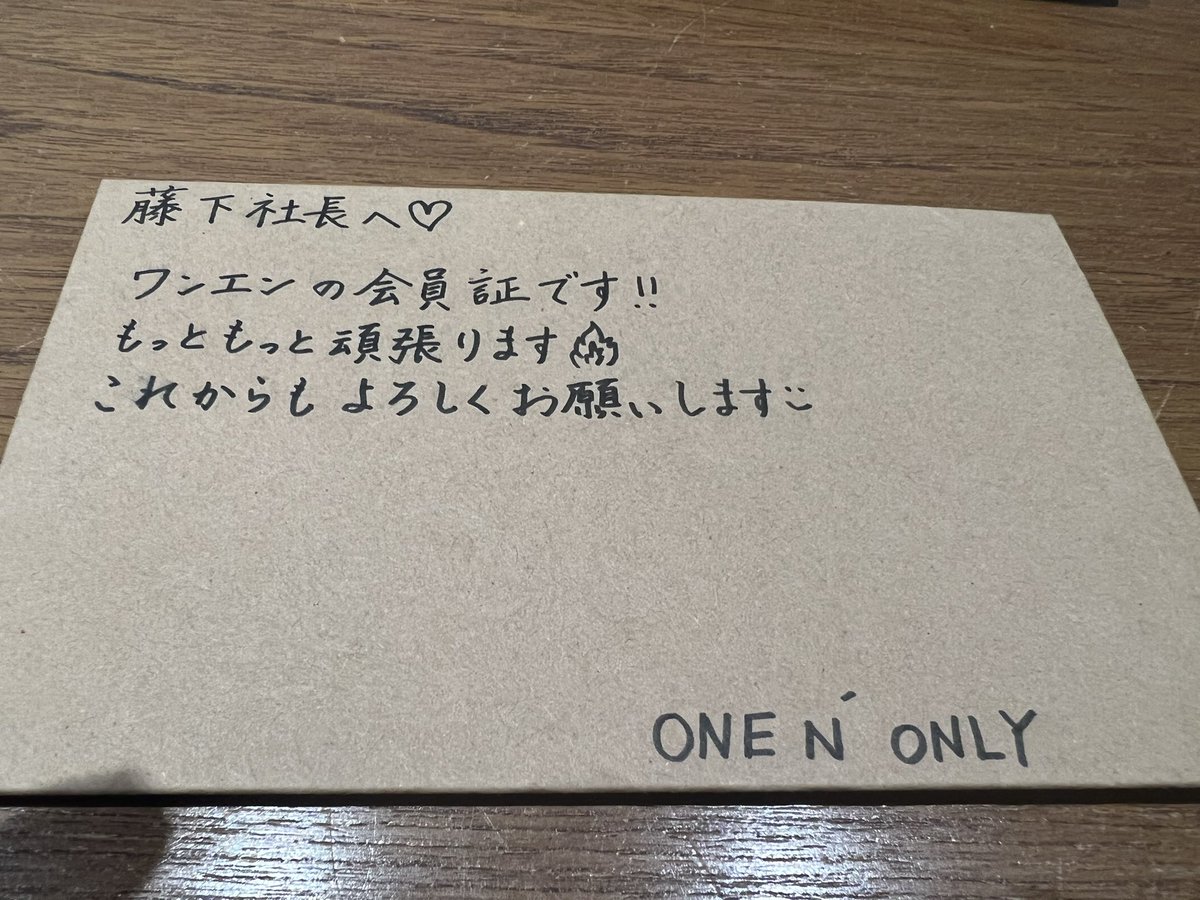 藤下社長へ♡
ワンエンの会員証です!!
もっともっと頑張ります🔥
これからもよろしくお願いします
ONE N' ONLY